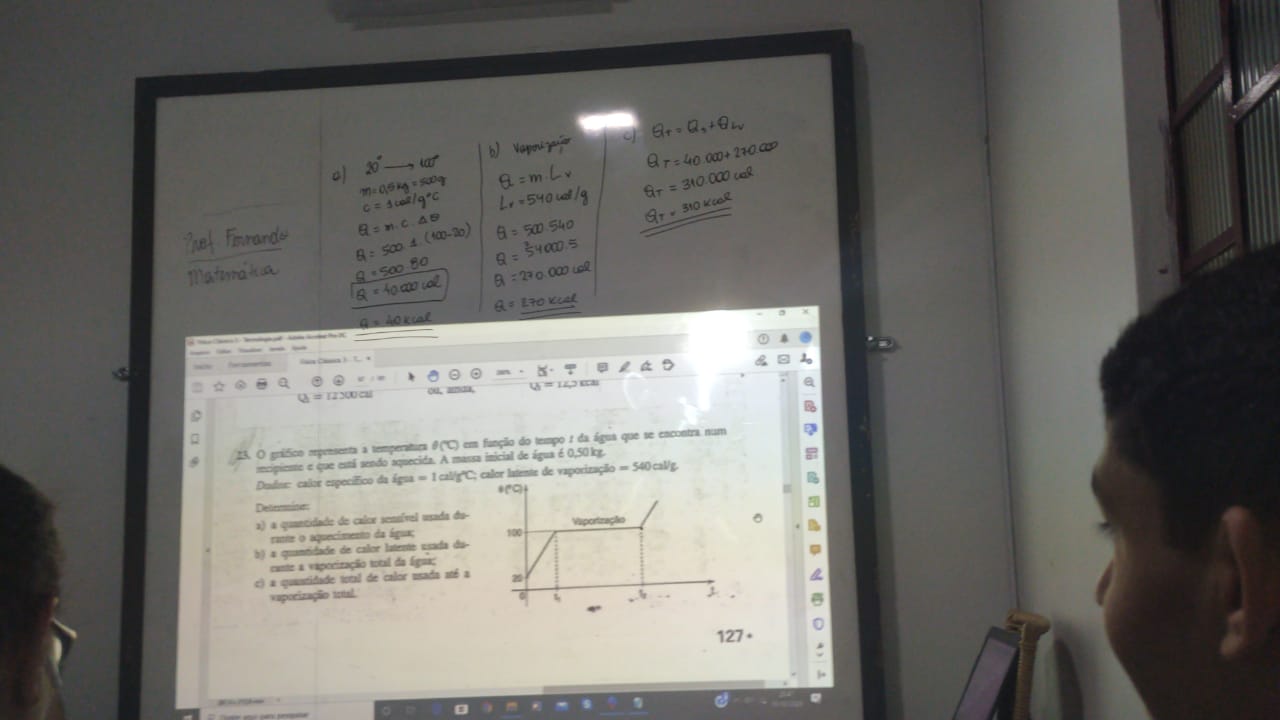 Prof. Fernando
Matemática
a) 20° → 100°
m = 0,5 kg = 500g
c = 1 cal/g°C
Q = m.c.Δθ
Q = 500.1.(100-20)
Q = 500.80
Q = 40.000 cal
Q = 40 kcal
b) Vaporização
Q = m.Lv
Lv = 540 cal/g
Q = 500.540
Q = 54000.5
Q = 270.000 cal
Q = 270 kcal
c) QT = Qs + QLv
QT = 40.000 + 270.000
QT = 310.000 cal
QT = 310 kcal
ou, ainda,
23. O gráfico representa a temperatura θ(°C) em função do tempo t da água que se encontra num
recipiente e que está sendo aquecida. A massa inicial de água é 0,50 kg.
Dados: calor específico da água = 1 cal/g°C; calor latente de vaporização = 540 cal/g.
Determine:
a) a quantidade de calor sensível usada du-
rante o aquecimento da água;
b) a quantidade de calor latente usada du-
rante a vaporização total da água;
c) a quantidade total de calor usada até a
vaporização total.
θ(°C)
100
Vaporização
20
0
t₁
t₂
t
127